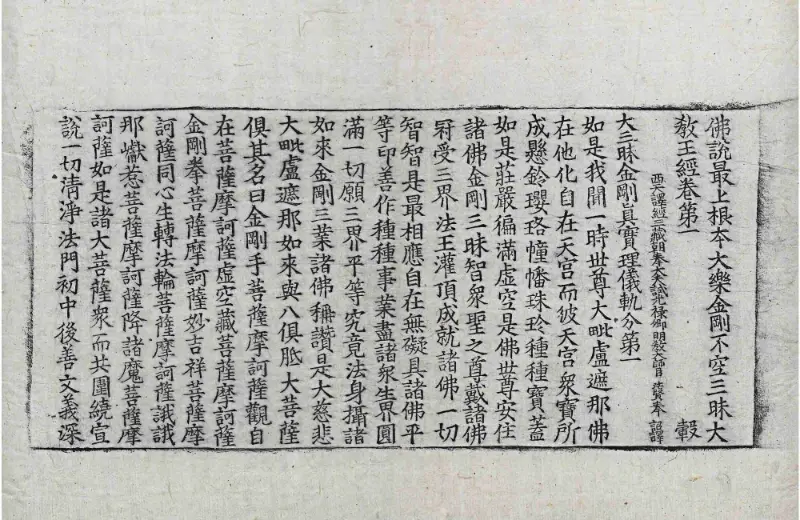 佛說最上根本大樂金剛不空三昧大
教王經卷第一　　　　　　　　轂
西天譯經三藏朝奉大夫試光祿卿明教大師臣法賢奉詔譯
大三昧金剛眞實理儀軌分第一
如是我聞一時世尊大毗盧遮那佛
在他化自在天宮而彼天宮衆寶所
成懸鈴瓔珞幢幡珠玲種種寶蓋
如是莊嚴徧滿虛空是佛世尊安住
諸佛金剛三昧智衆聖之尊戴諸佛
冠受三界法王灌頂成就諸佛一切
智智是最相應自在無礙具諸佛平
等印善作種種事業盡諸衆生界圓
滿一切願三界平等究竟法身攝諸
如來金剛三業諸佛稱讚是大慈悲
大毗盧遮那如來與八俱胝大菩薩
俱其名曰金剛手菩薩摩訶薩觀自
在菩薩摩訶薩虛空藏菩薩摩訶薩
金剛拳菩薩摩訶薩妙吉祥菩薩摩
訶薩同心生轉法輪菩薩摩訶薩誐誐
那巘惹菩薩摩訶薩降諸魔菩薩摩
訶薩如是諸大菩薩衆而共圍繞宣
說一切清淨法門初中後善文義深